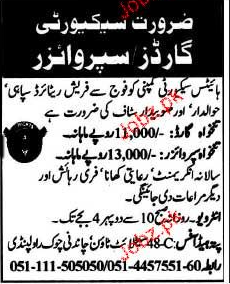 ضرورت سیکیورٹی
گارڈز/سپروائزر
ہائیٹس سیکیورٹی کمپنی کو فوج سے فریش ریٹائرڈ سپاہی'
حوالدار' اور صوبیدار سٹاف کی ضرورت ہے
تنخواہ گارڈ: -/11,000 روپے ماہانہ۔
تنخواہ سپروائزر: -/13,000 روپے ماہانہ۔
سالانہ انکریمنٹ' رعایتی کھانا' فری رہائش اور
دیگر مراعات دی جائینگی۔
انٹرویو۔ روزانہ صبح 10 سے دوپہر 4 بجے تک۔
پتہ ہیڈ آفس: 48-C سیٹلائیٹ ٹاؤن چاندنی چوک راولپنڈی
رابطہ 051-4457551-60/051-111-505050
Jobz.pk